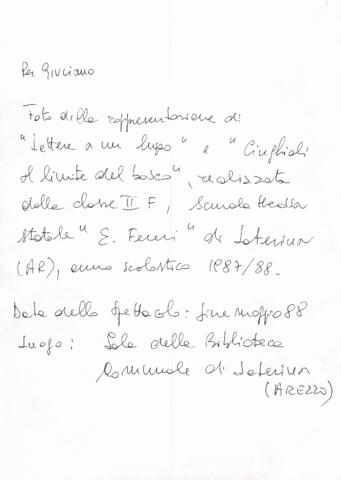 Per Giuliano
Foto della rappresentazione di
"Lettere a un lupo" e "Cinghiali
al limite del bosco", realizzata
dalla classe II F, Scuola Media
statale "E. Fermi" di Laterina
(AR), anno scolastico 1987/88.
Data dello spettacolo: fine maggio 88
Luogo: Sala della Biblioteca
Comunale di Laterina
(AREZZO)